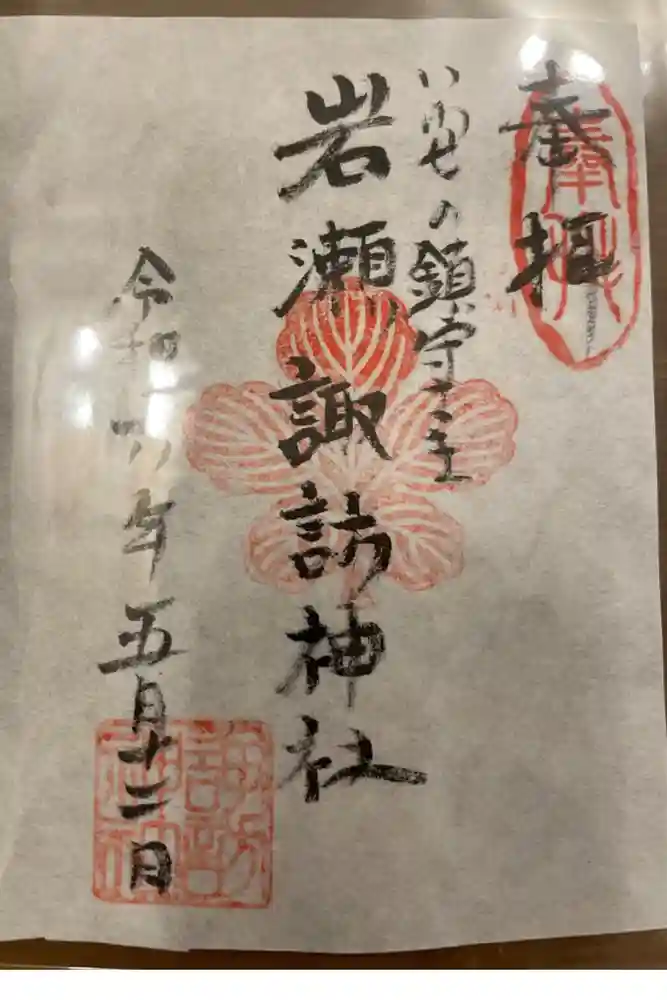 奉拝
奉拝
いわせの鎮守さま
岩瀬諏訪神社
令和六年五月十二日
諏訪